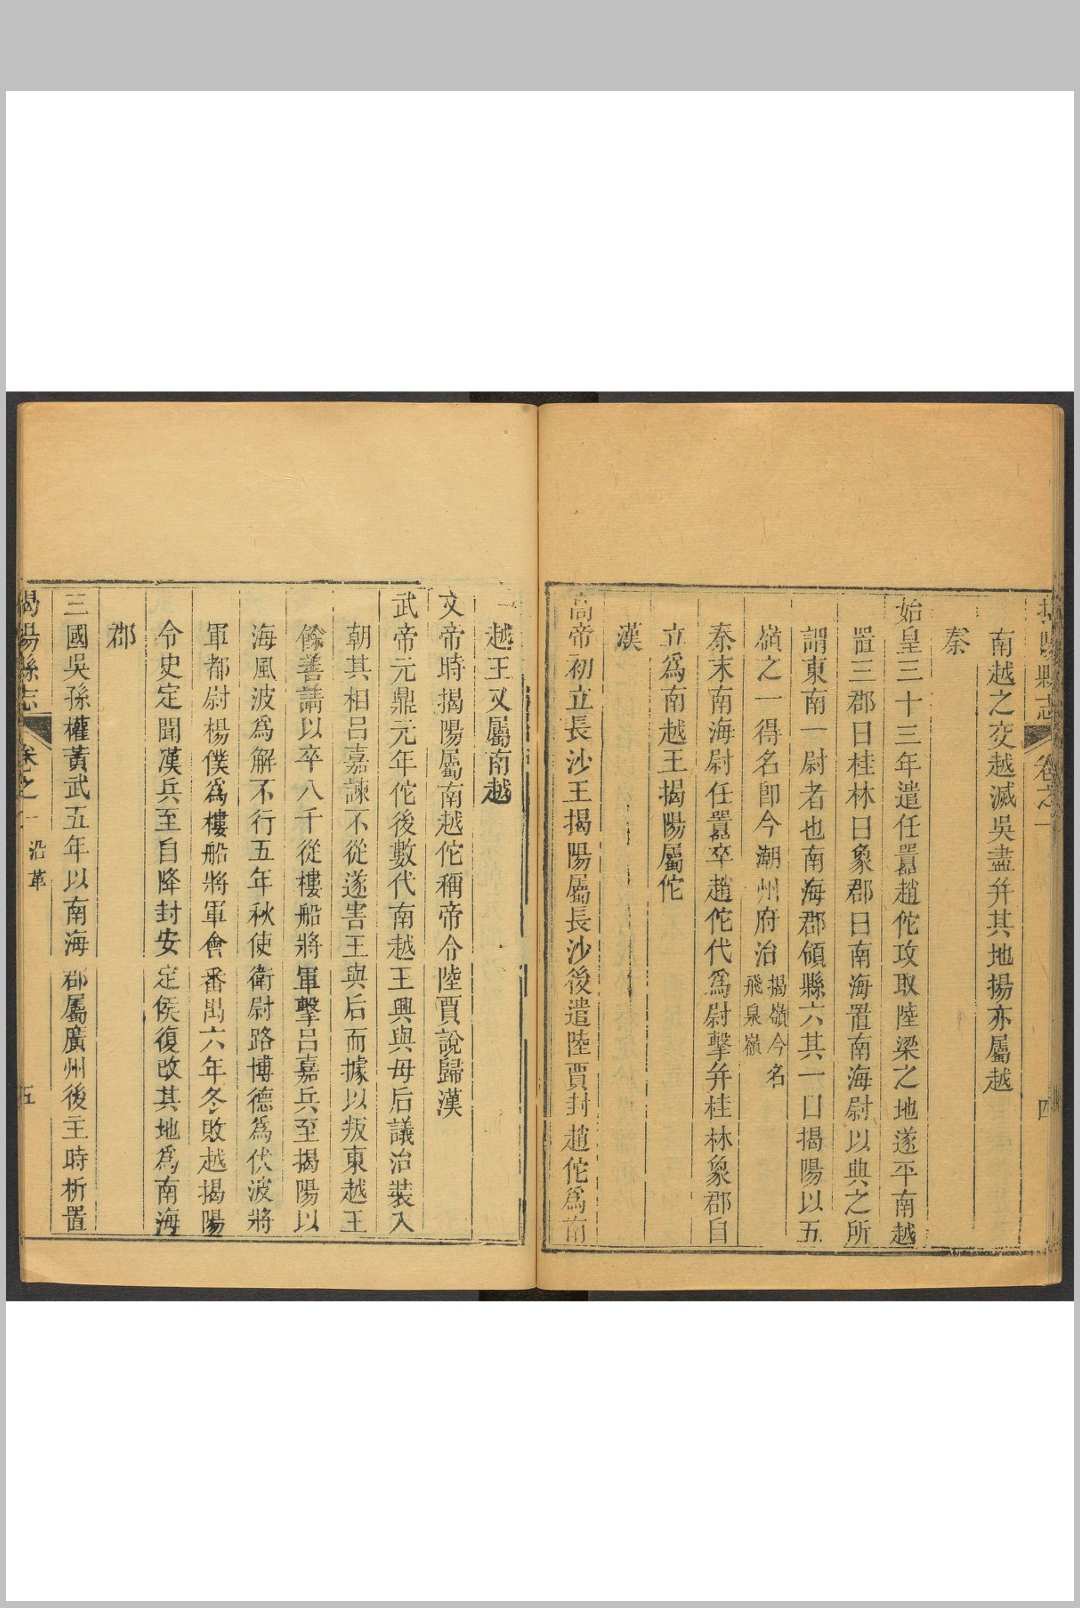 揭陽縣志 卷之一 四
南越之交越滅吳盡幷其地揚亦屬越
秦
始皇三十三年遣任囂趙佗攻取陸梁之地遂平南越
置三郡曰桂林曰象郡曰南海置南海尉以典之所
謂東南一尉者也南海郡領縣六其一曰揭陽以五
嶺之一得名卽今潮州府治揭嶺今名飛泉嶺
秦末南海尉任囂卒趙佗代爲尉擊幷桂林象郡自
立爲南越王揭陽屬佗
漢
高帝初立長沙王揭陽屬長沙後遣陸賈封趙佗爲南
越王又屬南越
文帝時揭陽屬南越佗稱帝令陸賈說歸漢
武帝元鼎元年佗後數代南越王興與母后議治裝入
朝其相呂嘉諫不從遂害王與后而據以叛東越王
餘善請以卒八千從樓船將軍擊呂嘉兵至揭陽以
海風波爲解不行五年秋使衛尉路博德爲伏波將
軍都尉楊僕爲樓船將軍會番禺六年冬敗越揭陽
令史定聞漢兵至自降封安定侯復改其地爲南海
郡
三國吳孫權黃武五年以南海郡屬廣州後主時析置
揭陽縣志 卷之一 沿革 五